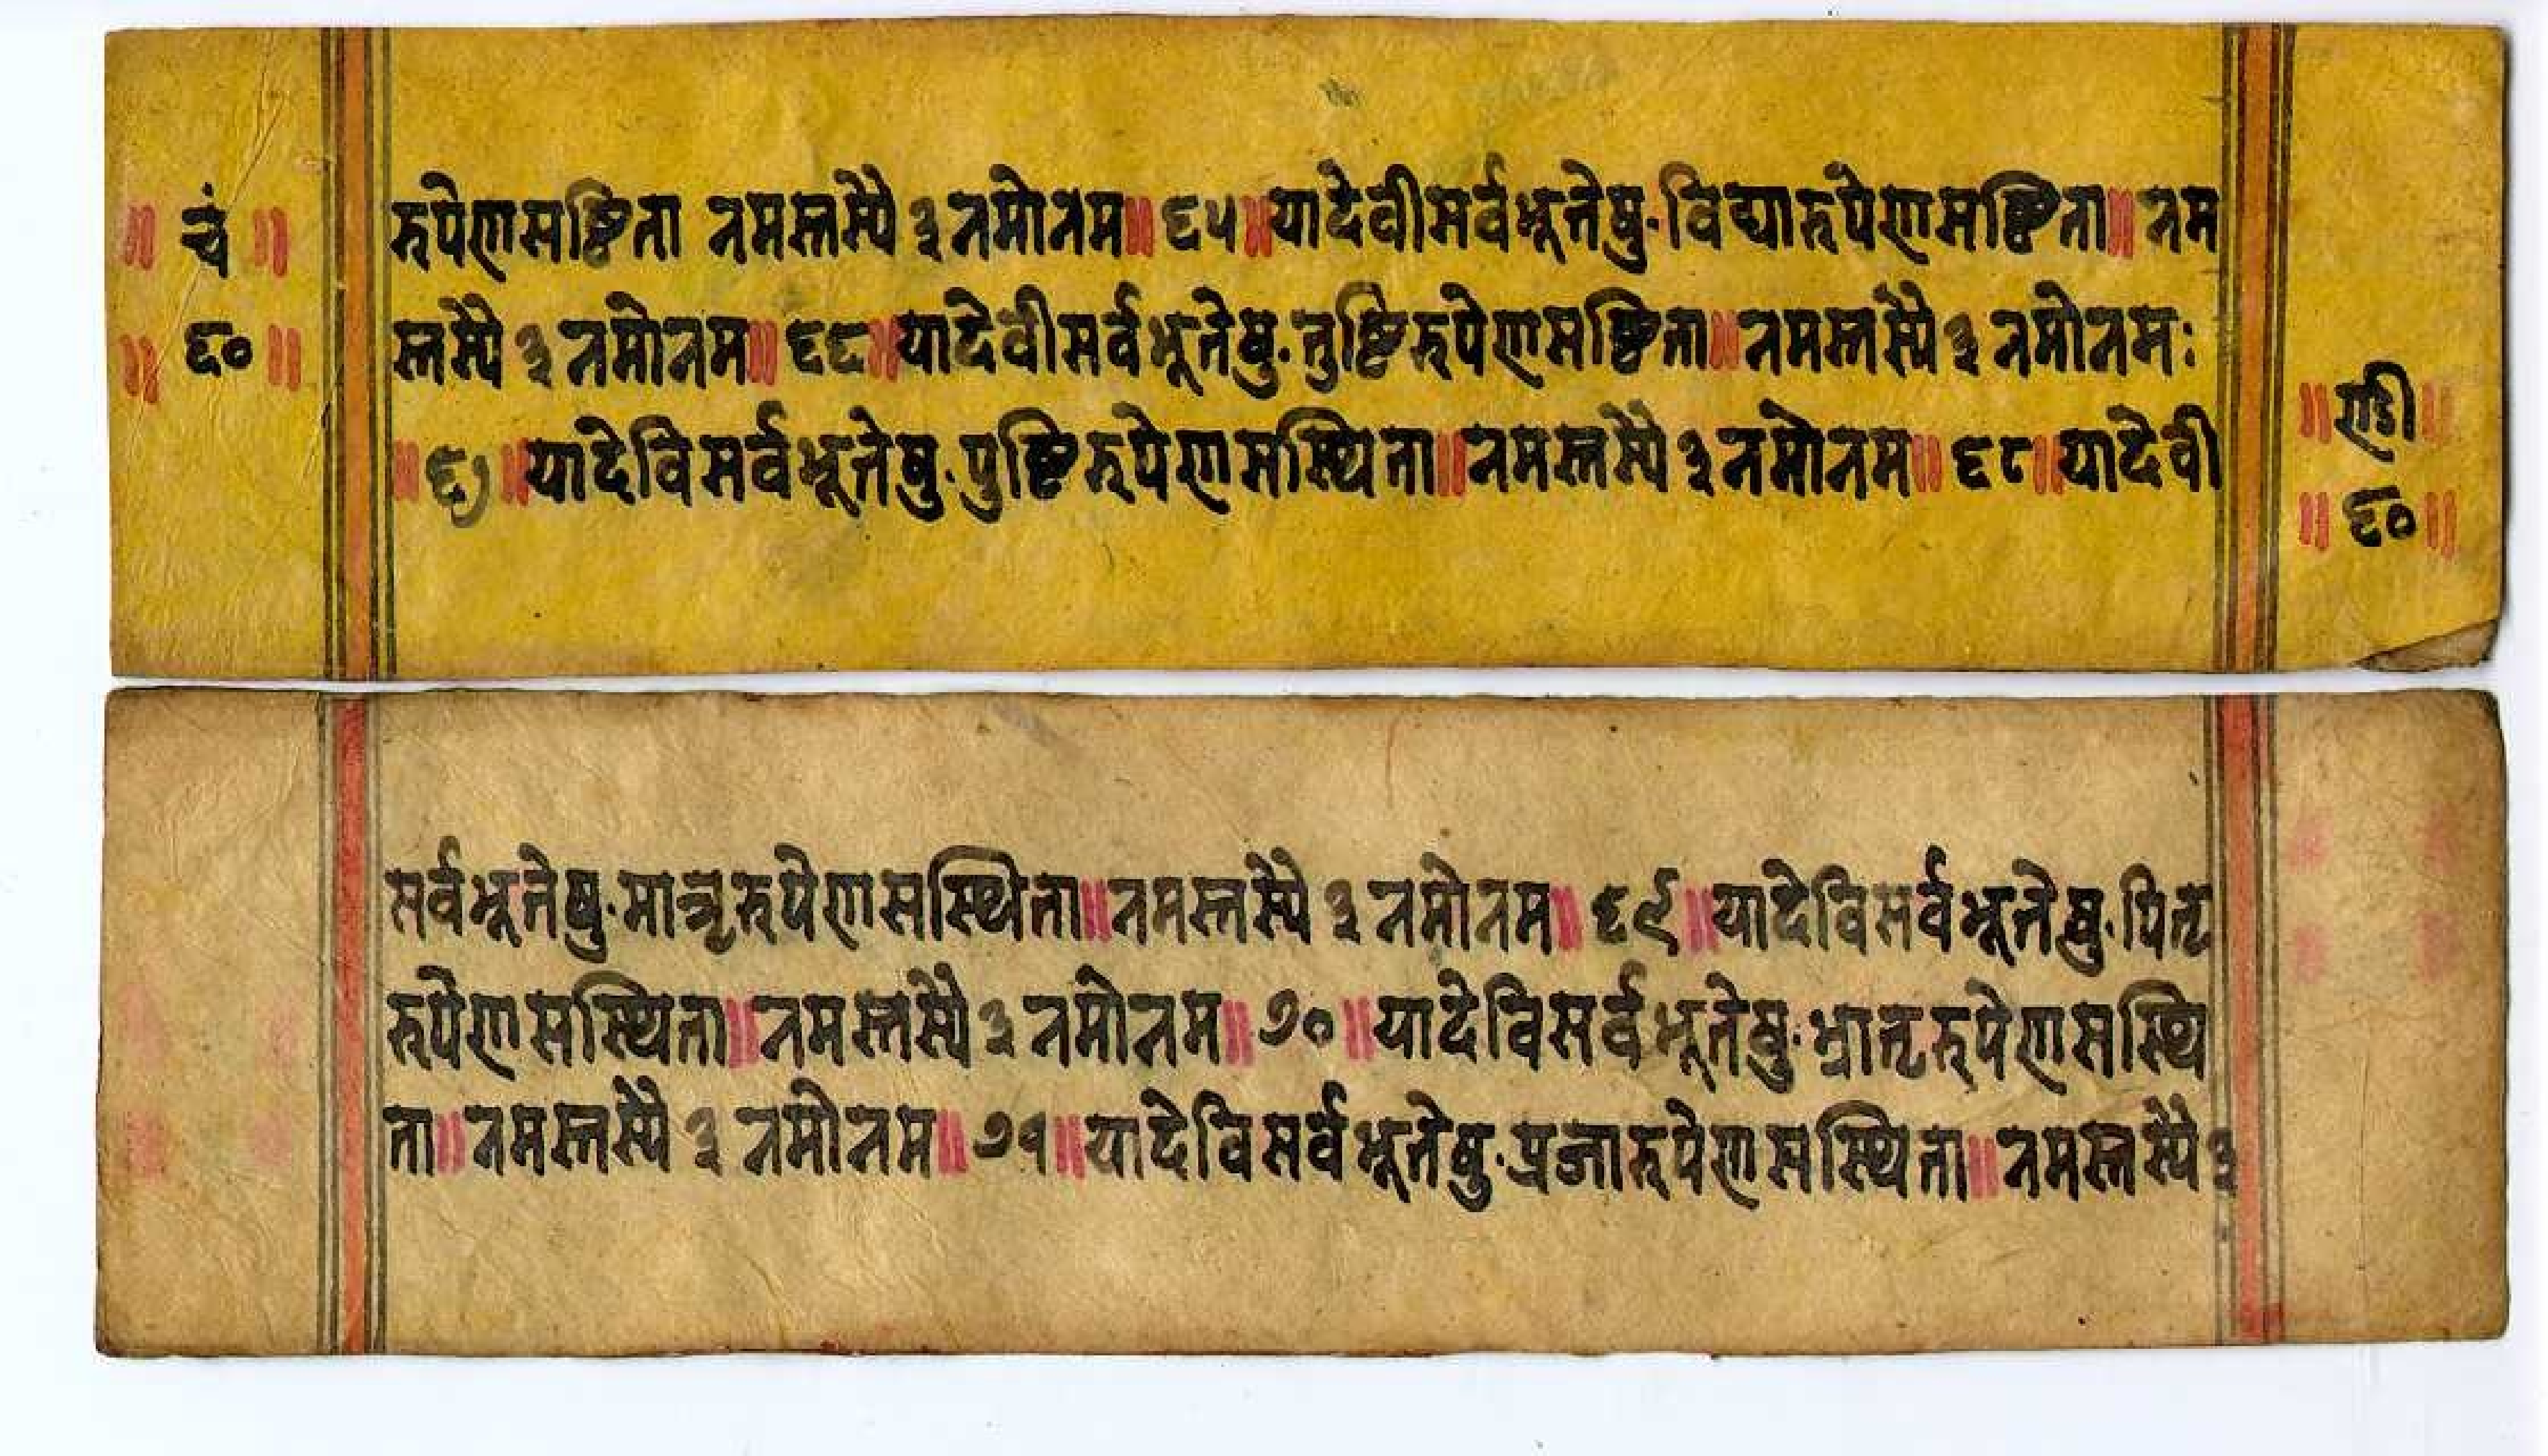 ॥ चं ॥
॥ ६० ॥
रुपेणसष्ठिता नमस्तस्यै ३ नमोनम॥ ६५॥यादेवीसर्वभूतेषु·विद्यारुपेणसष्ठिता॥नम
स्तस्यै ३ नमोनम॥ ६६॥यादेवीसर्वभूतेषु·तुष्टिरुपेणसष्ठिता॥नमस्तस्यै ३ नमोनमः
॥६७॥यादेविसर्वभूतेषु·पुष्टिरुपेणसस्थिता॥नमस्तस्यै ३ नमोनम॥ ६८॥यादेवी
॥ण्डी॥
॥ ६० ॥
सर्वभूतेषु·मातृरुपेणसस्थिता॥नमस्तस्यै ३ नमोनम॥ ६९॥यादेविसर्वभूतेषु·पितृ
रुपेणसस्थिता॥नमस्तस्यै ३ नमोनम॥ ७०॥यादेविसर्वभूतेषु·भ्रातृरुपेणसस्थि
ता॥नमस्तस्यै ३ नमोनम॥ ७१॥यादेविसर्वभूतेषु·प्रजारुपेणसस्थिता॥नमस्तस्यै ३